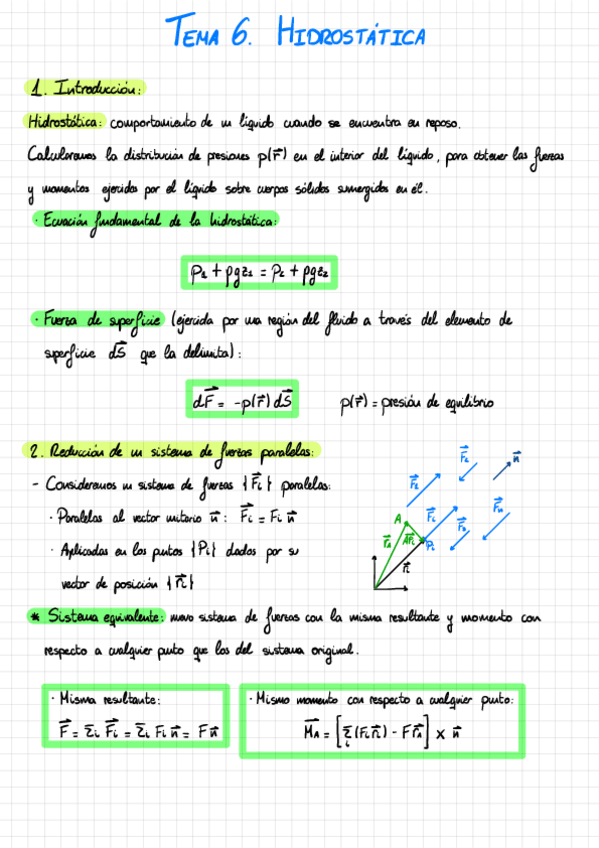 TEMA 6. HIDROSTÁTICA
1. Introducción:
Hidrostática: comportamiento de un líquido cuando se encuentra en reposo.
Calcularemos la distribución de presiones p(r⃗) en el interior del líquido, para obtener las fuerzas
y momentos ejercidos por el líquido sobre cuerpos sólidos sumergidos en él.
· Ecuación fundamental de la hidrostática:
p₁ + ρgz₁ = p₂ + ρgz₂
· Fuerza de superficie (ejercida por una región del fluido a través del elemento de
superficie dS⃗ que la delimita):
dF⃗ = -p(r⃗) dS⃗ p(r⃗) = presión de equilibrio
2. Reducción de un sistema de fuerzas paralelas:
- Consideramos un sistema de fuerzas {F⃗i} paralelas:
· Paralelas al vector unitario u⃗: F⃗i = Fi u⃗
· Aplicadas en los puntos {Pi} dados por su
vector de posición {r⃗i}
F⃗₂ u⃗
F⃗₁ F⃗n
A F⃗i F⃗₃
r⃗A AP⃗i Pi
r⃗i
* Sistema equivalente: nuevo sistema de fuerzas con la misma resultante y momento con
respecto a cualquier punto que los del sistema original.
· Misma resultante:
F⃗ = Σi F⃗i = Σi Fi u⃗ = F u⃗
· Mismo momento con respecto a cualquier punto:
M⃗A = [Σi (Fi r⃗i) - F r⃗A] × u⃗